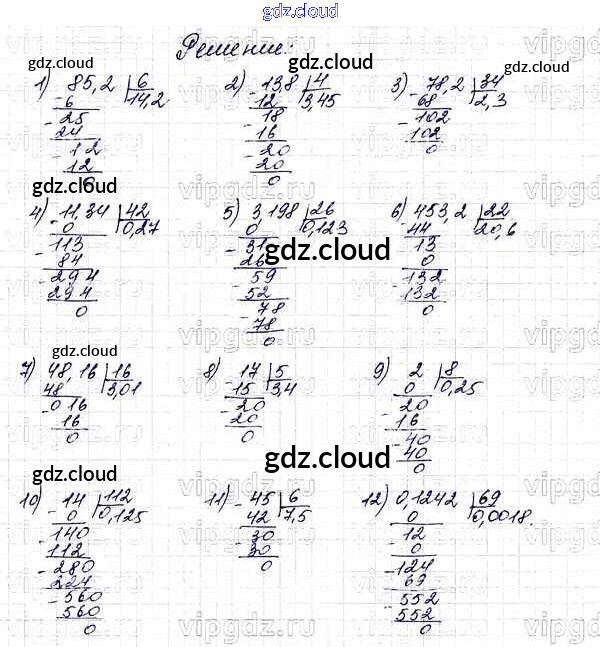 gdz.cloud
Решение:
1) 85,2 | 6
- 6 14,2
- 25
24
- 12
12
0
2) - 13,8 | 4
12 3,45
- 18
16
- 20
20
0
3) - 78,2 | 34
68 2,3
- 102
102
0
4) - 11,34 | 42
0 0,27
- 113
84
- 294
294
0
5) 3,198 | 26
0 0,123
- 31
26
- 59
52
- 78
78
0
6) 453,2 | 22
- 44 20,6
- 13
0
- 132
132
0
7) 48,16 | 16
48 3,01
- 016
16
0
8) - 17 | 5
15 3,4
- 20
20
0
9) - 2 | 8
0 0,25
- 20
16
- 40
40
0
10) - 14 | 112
0 0,125
- 140
112
- 280
224
- 560
560
0
11) - 45 | 6
42 7,5
- 30
30
0
12) 0,1242 | 69
0 0,0018.
- 12
0
- 124
69
- 552
552
0
gdz.cloud
gdz.cloud
gdz.cloud
gdz.cloud
gdz.cloud
gdz.cloud
gdz.cloud
gdz.cloud
gdz.cloud
gdz.cloud
vipgdz.ru